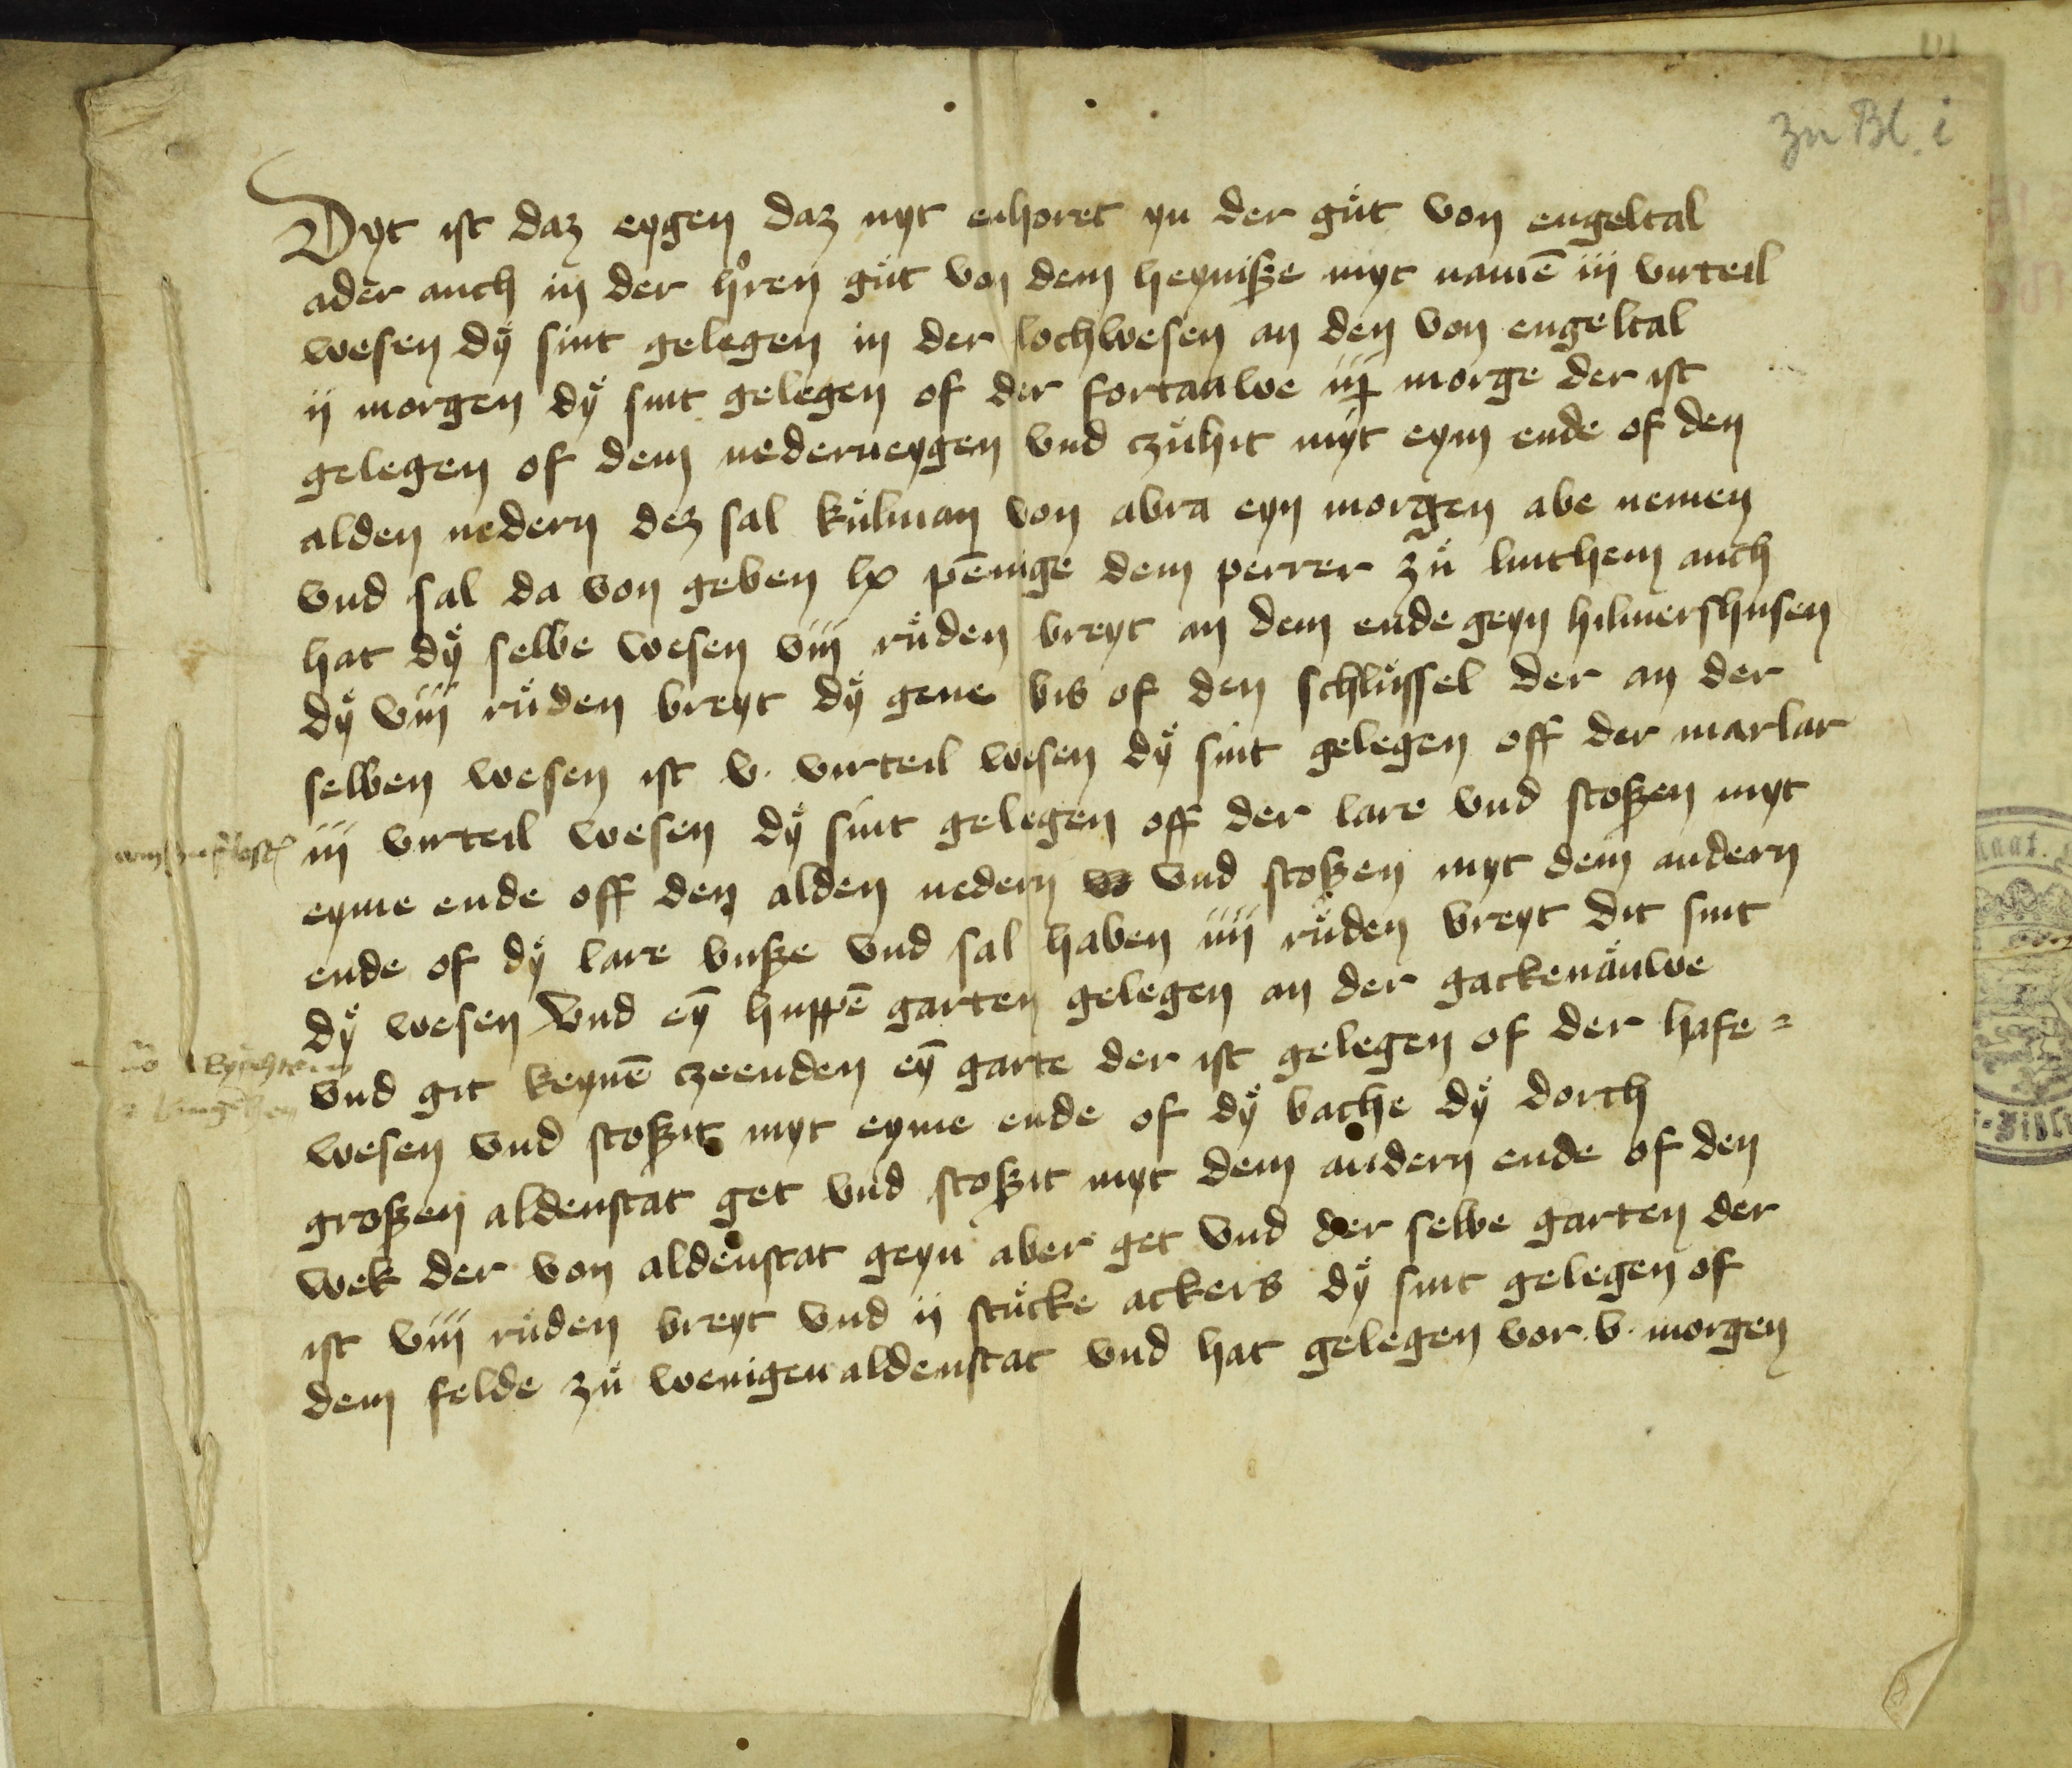 zu Bl. i
Dyt ist daz eygen daz nyt enhoret yn der gůt von engeltal
ader auch in der hˀren gůt von dem heynisze myt namē iij virteil
wesen dÿ sint gelegen in der lochwesen an den von engeltal
ij morgen dÿ sint gelegen of der fortauwe morge der ist
gelegen of dem nederneygen vnd czůhit myt eym ende of den
alden nedern dez sal kůlman von abra eyn morgen abe nemen
vnd sal da von geben lx pēnige dem perrer zů linthem auch
hat dÿ selbe wesen viii růden breyt an dem ende geyn hilmershusen
dÿ viii růden breyt dÿ gene bis of den schlůssel der an der
selben wesen ist v. virteil wesen dÿ sint gelegen off der marlar
iij virteil wesen dÿ sint gelegen off der lare vnd stoszen myt
eyme ende off den alden nedern vnd stoszen myt dem andern
ende of dÿ lare busze vnd sal haben iiii růden breyt dit sint
dÿ wesen Vnd eȳ huppē garten gelegen an der gackenåuwe
vnd git keynē czeenden eȳ garte der ist gelegen of der hafe=
wesen vnd stoszit myt eyme ende of dÿ bache dÿ dorch
groszen aldenstat get vnd stoszit myt dem andern ende of den
wek der von aldenstat geyn aber get vnd der selbe garten der
ist viii růden breyt vnd ij stůcke ackers dÿ sint gelegen of
dem felde zů wenigen aldenstat vnd hat gelegen vor .v. morgen